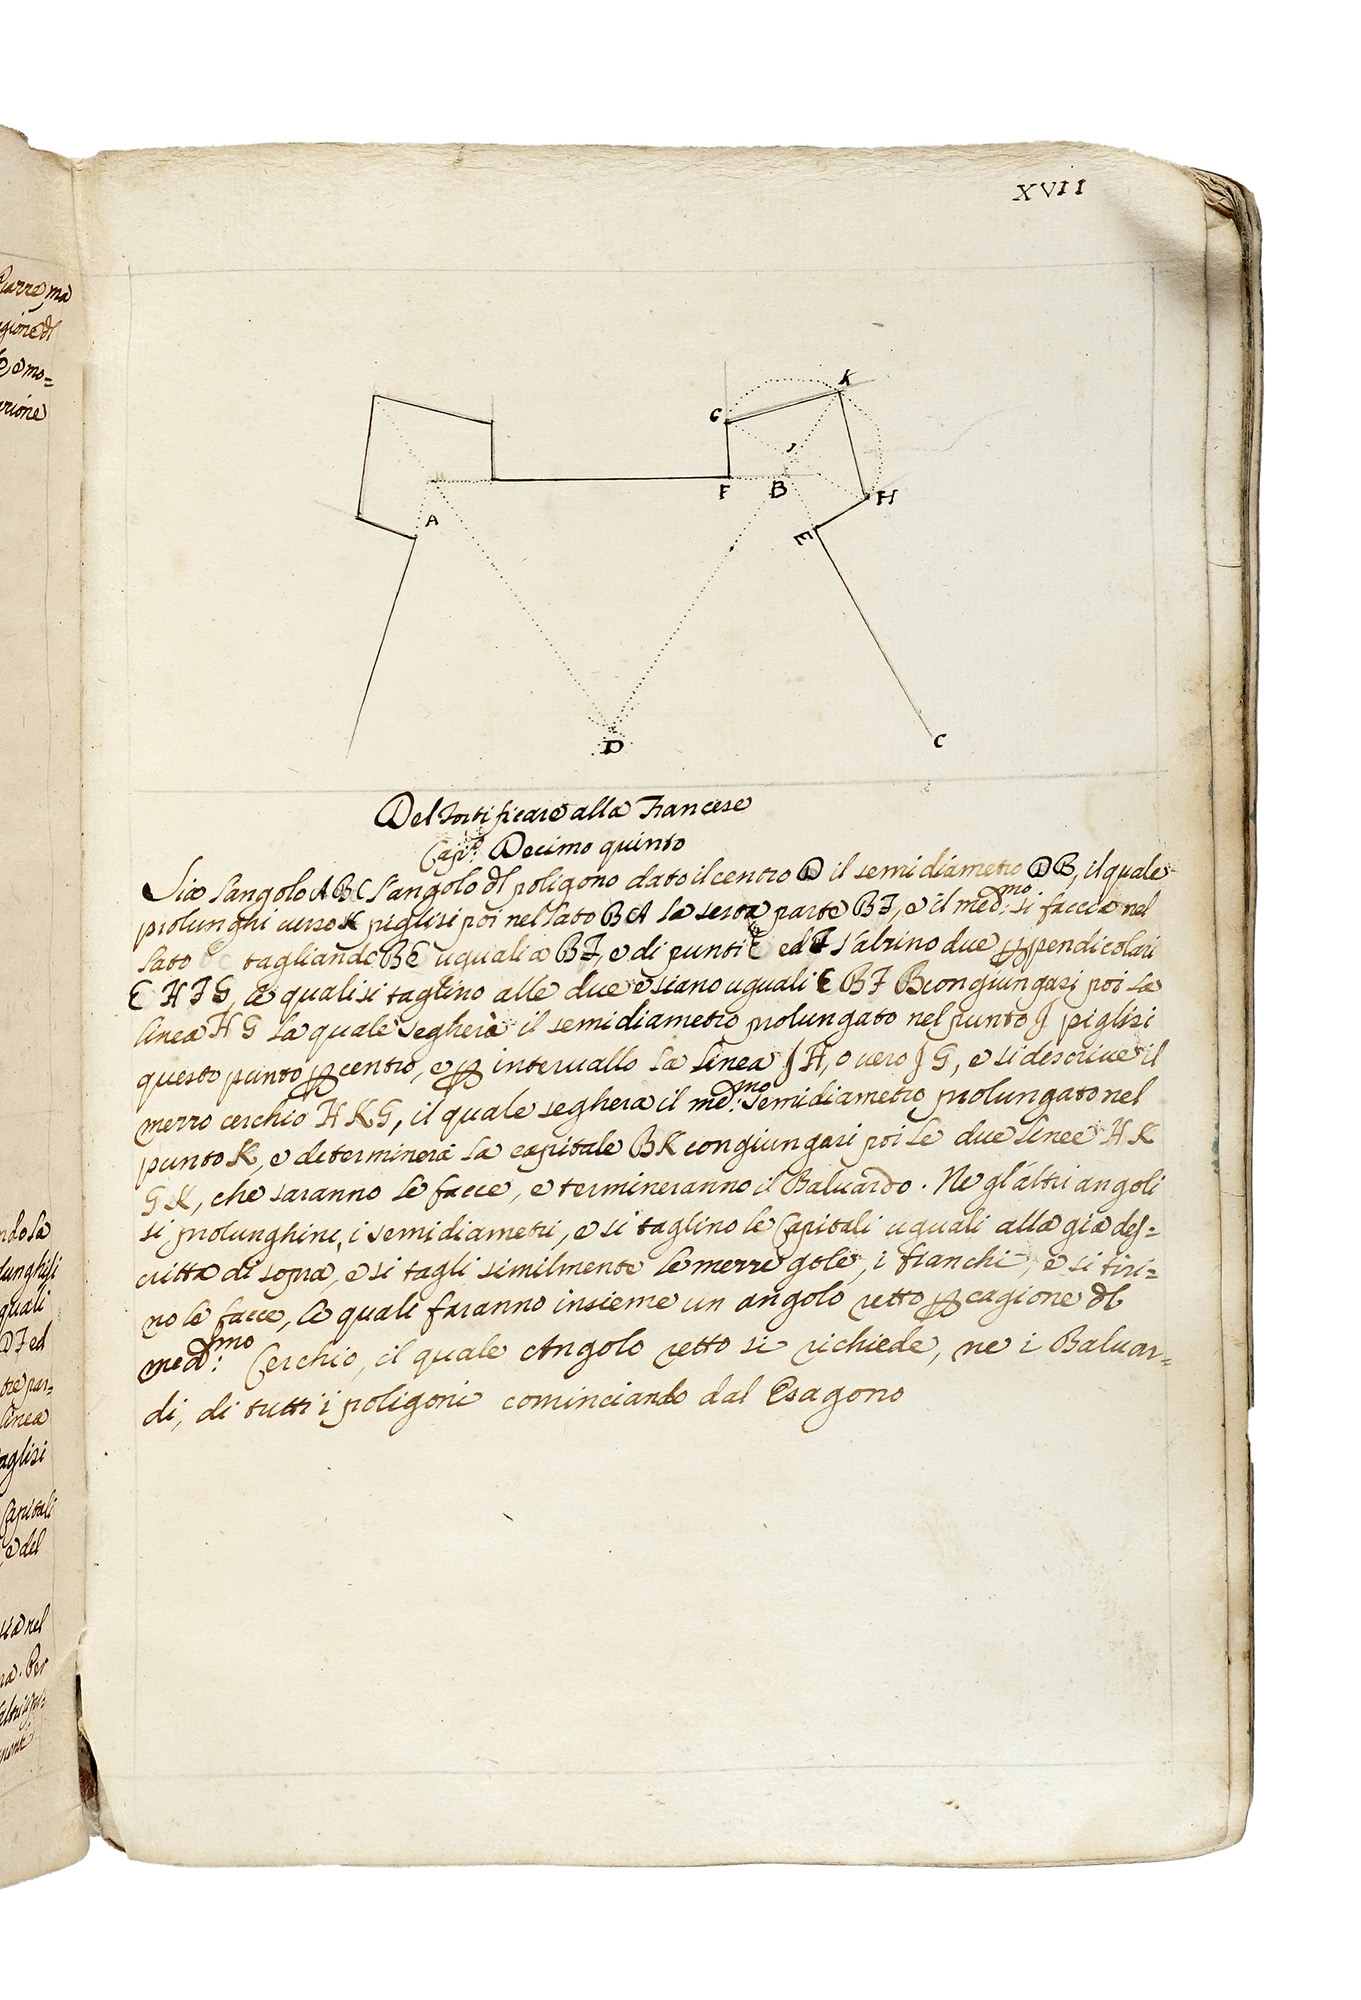 XVII
K
G
I
F
B
H
A
E
D
C
Del Fortificare alla Francese
Cap.º Decimo quinto
Sia l'angolo ABC l'angolo dl poligono dato il centro D il semidiametro DB, il quale
prolunghi verso K piglisi poi nel lato BA la sesta parte BF, e il med.mo si faccia nel
lato BC tagliando BE uguali a BF, e di punti E ed F s'alzino due perpendicolari
E H F G, le quali si taglino alle due e siano uguali E B F B congiungasi poi la
linea H G la quale segherà il semidiametro prolungato nel punto J piglisi
questo punto per centro, e per intervallo la linea J H, o vero J G, e si descrive il
mezzo cerchio H K G, il quale seghera il med.mo semidiametro prolungato nel
punto K, e determinerà la capitale BK congiungasi poi le due linee H K
G K, che saranno le facce, e termineranno il Baluardo. Ne gl'altri angoli
si prolunghino i semidiametri, e si taglino le Capitali uguali alla già des=
critta di sopra, e si tagli similmente le mezze gole, i fianchi, e si tiri=
no le facce, le quali faranno insieme un angolo retto per cagione dl
med.mo Cerchio, il quale Angolo retto si richiede, ne i Baluar=
di, di tutti i poligoni cominciando dal Esagono
Piarre, ma
gione dl
e mo=
zione
ndo la
lunghisi
quali
DF ed
tre par=
linea
aglisi
Capitali
, e del
sia nel
ra. Per